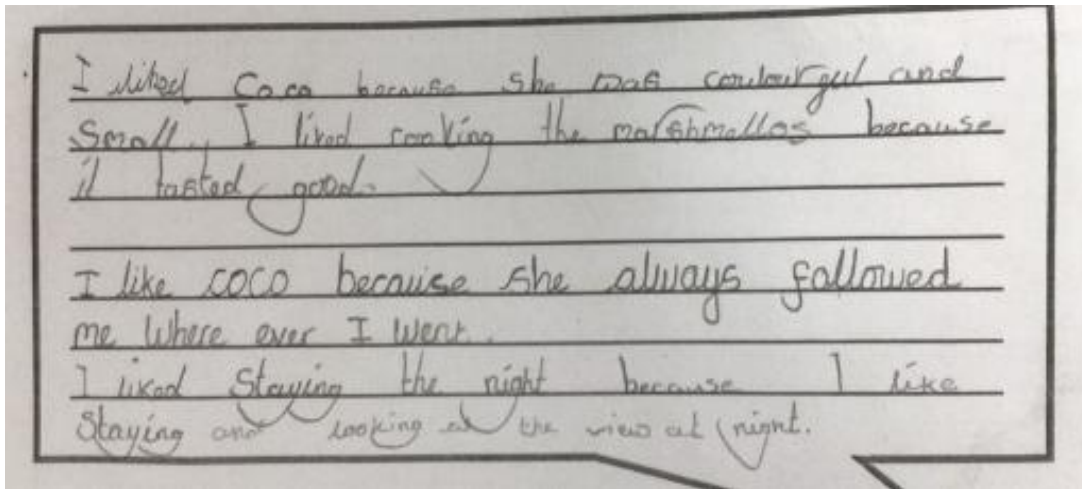 I liked Coco because she was coulourful and
Small. I liked cooking the marshmellos because
it tasted good.
I like coco because she always followed
me where ever I went.
I liked Staying the night because I like
Staying and looking at the view at night.